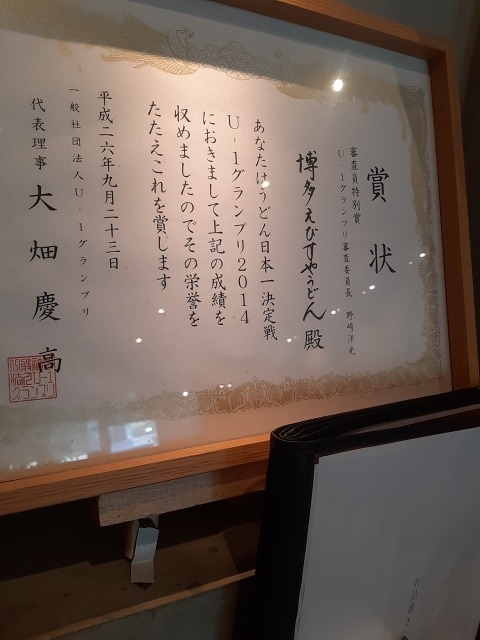 賞状
審査員特別賞
U-1グランプリ審査委員長 野崎洋光
博多えびすやうどん殿
あなたはうどん日本一決定戦
U-1グランプリ2014
におきまして上記の成績を
収めましたのでその栄誉を
たたえこれを賞します
平成二六年九月二十三日
一般社団法人U-1グランプリ
代表理事 大畑慶高
お品書き